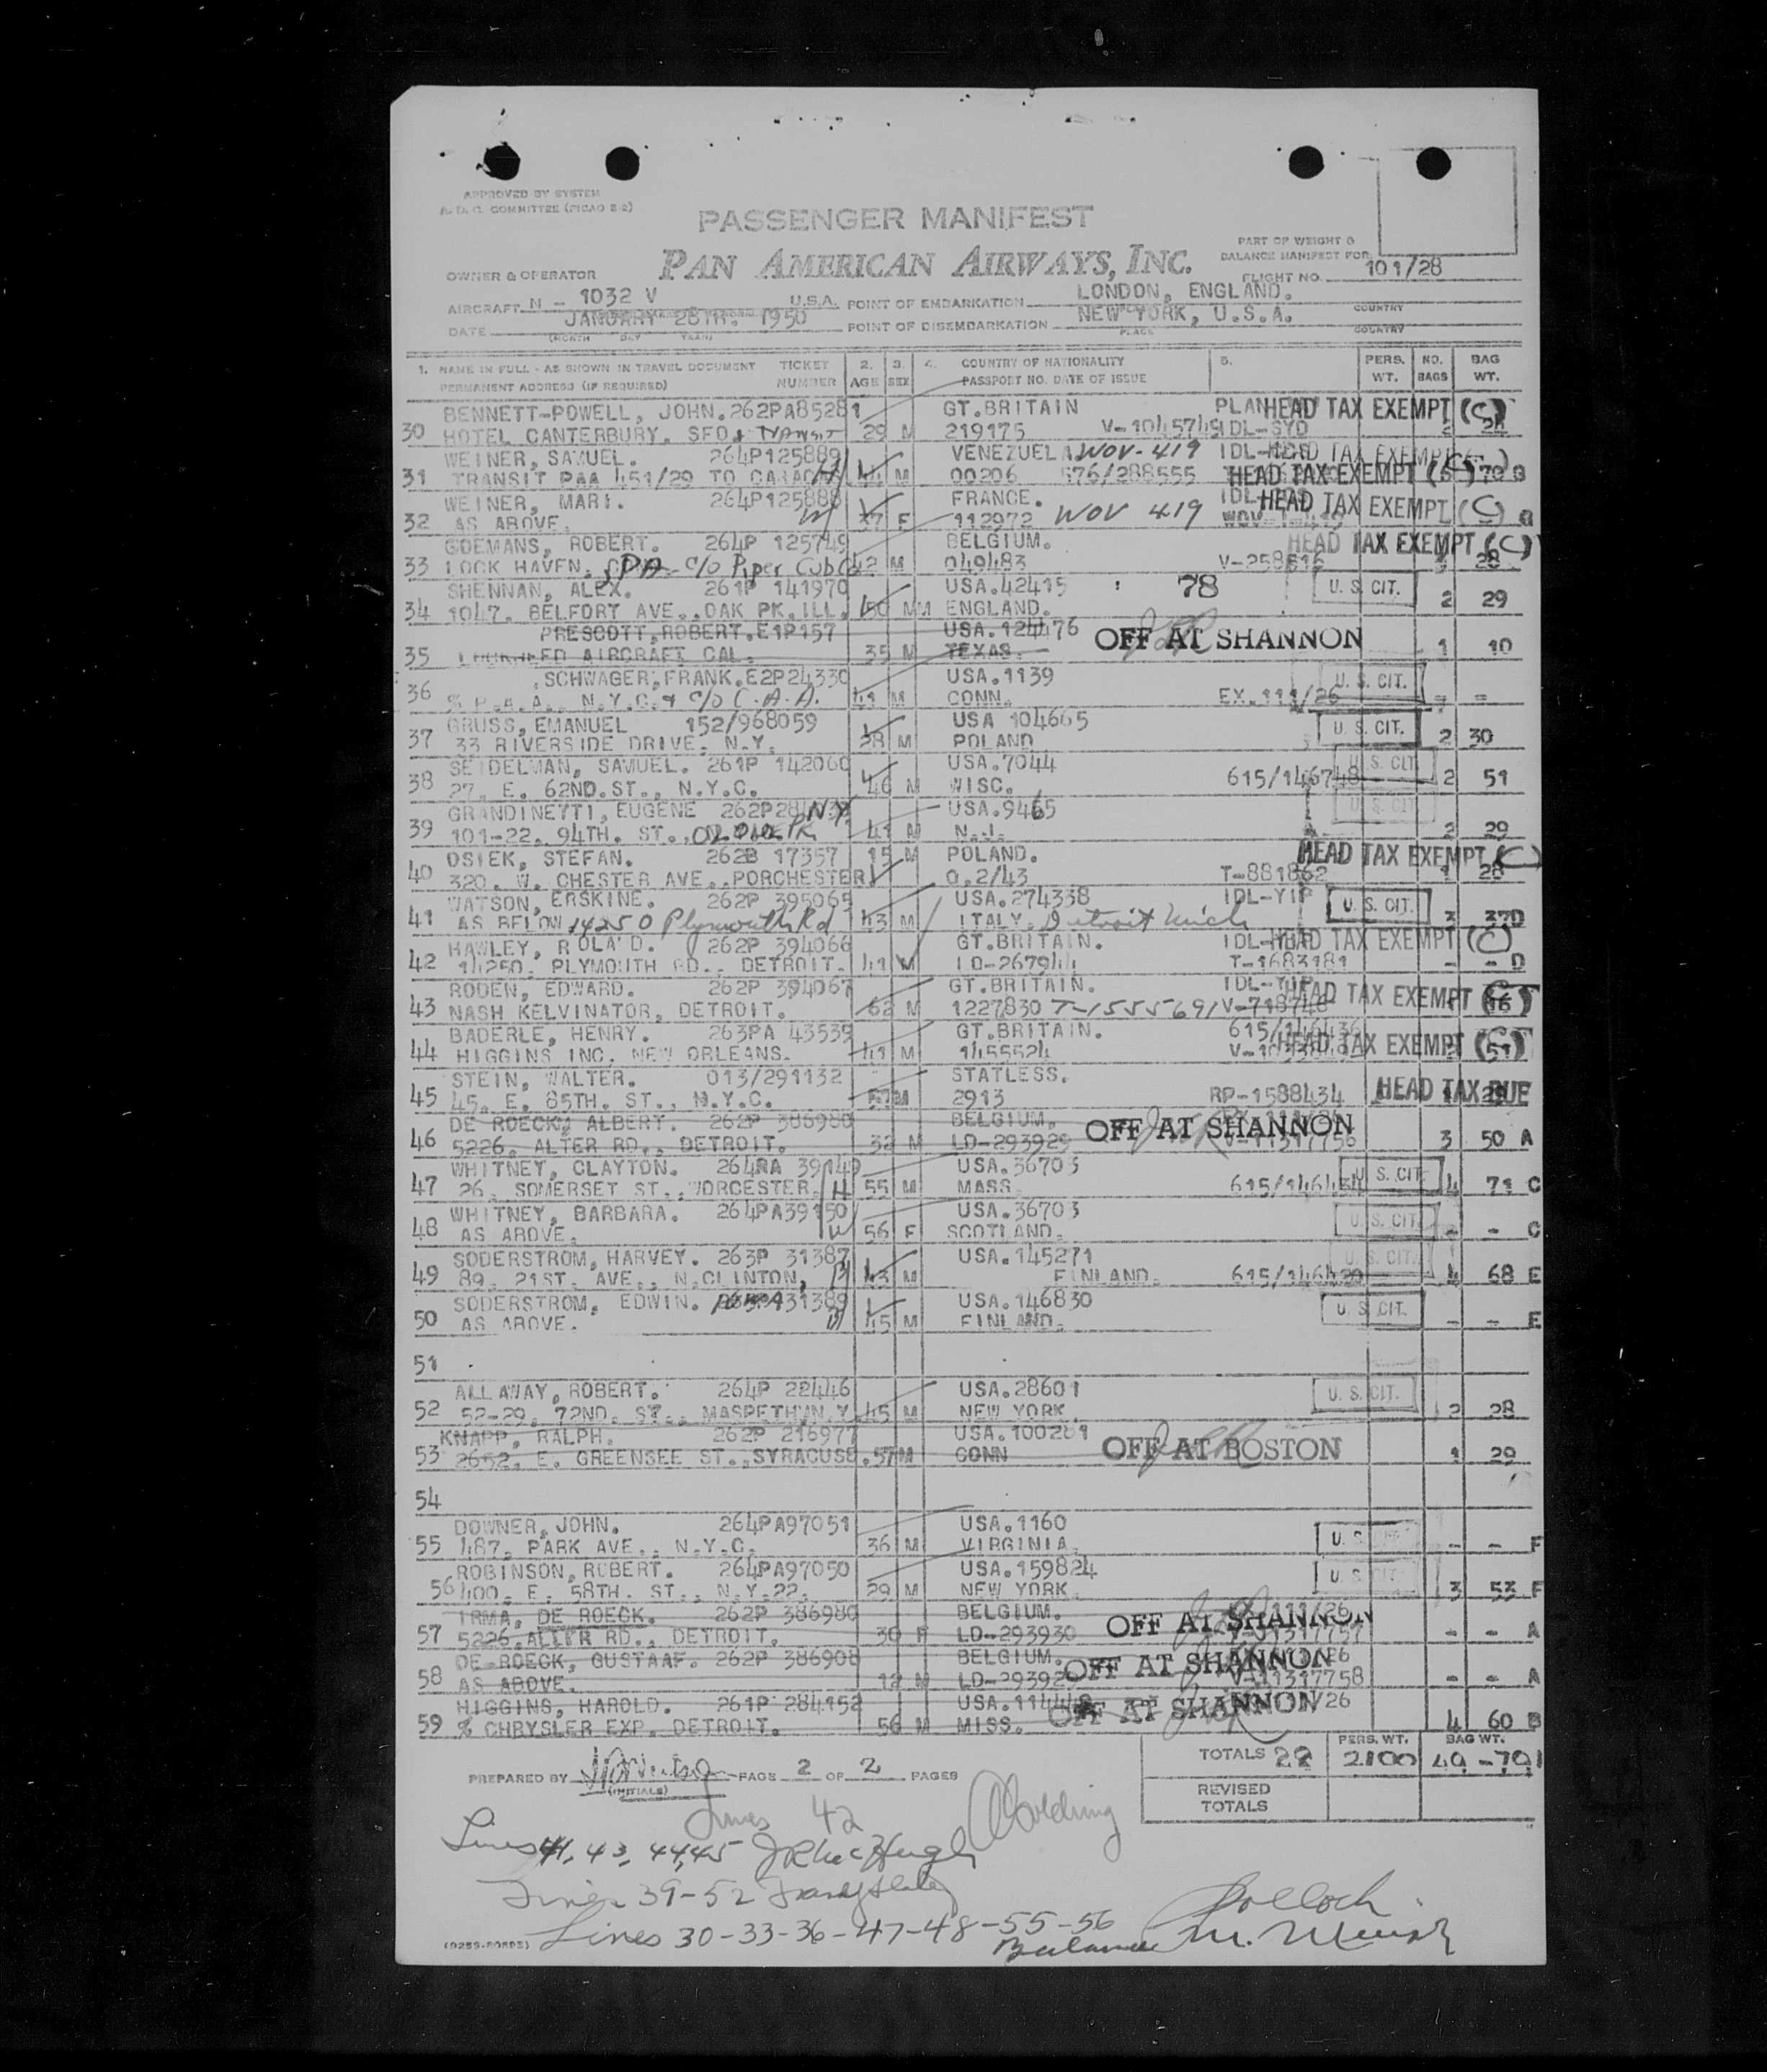 APPROVED BY SYSTEM
A.D.C. COMMITTEE (PICAO 2-2)
PASSENGER MANIFEST
PAN AMERICAN AIRWAYS, INC.
PART OF WEIGHT &
BALANCE MANIFEST FOR
OWNER & OPERATOR
FLIGHT NO. 101/28
AIRCRAFT N - 1032 V U.S.A. POINT OF EMBARKATION LONDON, ENGLAND. COUNTRY
DATE JANUARY 28TH. 1950 POINT OF DISEMBARKATION NEW YORK, U.S.A. COUNTRY
(MONTH DAY YEAR) PLACE
1. NAME IN FULL - AS SHOWN IN TRAVEL DOCUMENT TICKET 2. 3. 4. COUNTRY OF NATIONALITY 5. PERS. NO. BAG
PERMANENT ADDRESS (IF REQUIRED) NUMBER AGE SEX PASSPORT NO. DATE OF ISSUE WT. BAGS WT.
BENNETT-POWELL, JOHN. 262PA85281 GT.BRITAIN HEAD TAX EXEMPT (C)
30 HOTEL CANTERBURY. SFO. TRANSIT 29 M 219175 V-1045749 IDL-SYD
WEINER, SAMUEL. 264P125889 VENEZUELA WOV-419 HEAD TAX EXEMPT
31 TRANSIT PAA 451/29 TO CARACAS M 00206 576/288555 HEAD TAX EXEMPT 70 G
WEINER, MARI. 264P125888 FRANCE. HEAD TAX EXEMPT (C)
32 AS ABOVE. W 37 F 112972 WOV 419 G
GOEMANS, ROBERT. 264P 125749 BELGIUM. HEAD TAX EXEMPT (C)
33 LOCK HAVEN. PA- c/o Piper Cub Co 42 M 049483 V-258616 28
SHENNAN, ALEX. 261P 141970 USA.42415 78 U. S. CIT.
34 1047. BELFORT AVE., OAK PK.ILL. 50 M ENGLAND. 2 29
PRESCOTT, ROBERT. E1P157 USA.124476 OFF AT SHANNON
35 LOCKHEED AIRCRAFT CAL. 35 M TEXAS. 1 10
SCHWAGER, FRANK. E2P24330 USA.1139 U. S. CIT.
36 % P.A.A., N.Y.C. & c/o C.A.A. 41 M CONN. EX.111/26 - -
GRUSS, EMANUEL 152/968059 USA 104665 U. S. CIT.
37 33 RIVERSIDE DRIVE. N.Y. 28 M POLAND 2 30
SEIDELMAN, SAMUEL. 261P 142060 USA.7044 U. S. CIT.
38 27. E. 62ND.ST., N.Y.C. 46 M WISC. 615/146748 2 51
GRANDINETTI, EUGENE 262P N.Y. USA.9465 U. S. CIT
39 101-22. 94TH. ST., OZONE PK 41 M N.J. 2 29
OSIEK, STEFAN. 262B 17357 15 M POLAND. HEAD TAX EXEMPT (C)
40 320. W. CHESTER AVE., PORCHESTER O.2/43 T-881862 1 28
WATSON, ERSKINE. 262P 395065 USA.274338 IDL-YIP U. S. CIT.
41 AS BELOW 14250 Plymouth Rd 43 M ITALY. Detroit Mich 3 37D
HAWLEY, ROLAND. 262P 394066 GT.BRITAIN. HEAD TAX EXEMPT (C)
42 14250. PLYMOUTH RD., DETROIT. 41 M LD-267944 T-1683181 - - D
RODEN, EDWARD. 262P 394067 GT.BRITAIN. IDL-YIP HEAD TAX EXEMPT (C)
43 NASH KELVINATOR, DETROIT. 62 M 1227830 T-1555691 V-718748
BADERLE, HENRY. 263PA 43539 GT.BRITAIN. 615/146436
44 HIGGINS INC. NEW ORLEANS. 41 M 1455524 HEAD TAX EXEMPT (C)
STEIN, WALTER. 013/291132 STATLESS.
45 45. E. 85TH. ST., N.Y.C. M 2913 RP-1588434 HEAD TAX DUE
DE ROECK, ALBERT. 262P 386980 BELGIUM. OFF AT SHANNON
46 5226. ALTER RD., DETROIT. 32 M LD-293929 3 50 A
WHITNEY, CLAYTON. 264PA 39149 USA.36703 U. S. CIT.
47 26. SOMERSET ST., WORCESTER. H 55 M MASS. 4 71 C
WHITNEY, BARBARA. 264PA39150 USA.36703 U. S. CIT.
48 AS ABOVE. W 56 F SCOTLAND. - - C
SODERSTROM, HARVEY. 263P 31387 USA.145271 U. S. CIT.
49 89. 21ST. AVE., N.CLINTON, 43 M FINLAND. 615/146420 4 68 E
SODERSTROM, EDWIN. 31389 USA.146830 U. S. CIT.
50 AS ABOVE. 45 M FINLAND. - - E
51
ALLAWAY, ROBERT. 264P 22446 USA.28601 U. S. CIT.
52 52-29. 72ND. ST., MASPETH, N.Y. 45 M NEW YORK. 2 28
KNAPP, RALPH. 262P 216977 USA.100281 OFF AT BOSTON
53 2652. E. GREENSEE ST., SYRACUSE. 57 M CONN 1 29
54
DOWNER, JOHN. 264PA97051 USA.1160 U. S.
55 487. PARK AVE., N.Y.C. 36 M VIRGINIA. - - F
ROBINSON, ROBERT. 264PA97050 USA.159824 U. S. CIT.
56 400. E. 58TH. ST., N.Y.22. 29 M NEW YORK. 3 53 F
IRMA, DE ROECK. 262P 386980 BELGIUM. OFF AT SHANNON
57 5226. ALTER RD., DETROIT. 30 F LD-293930 - - A
DE-ROECK, GUSTAAF. 262P 386908 BELGIUM. OFF AT SHANNON
58 AS ABOVE. 12 M LD-293929 - - A
HIGGINS, HAROLD. 261P 284152 USA. OFF AT SHANNON
59 % CHRYSLER EXP. DETROIT. 56 M MISS. 4 60 B
PERS. WT. BAG WT.
TOTALS 22 2100 49 -791
PREPARED BY PAGE 2 OF 2 PAGES
(INITIALS)
REVISED
TOTALS
Lines 42
Lines 41, 43, 44, 45
Lines 39-52
Lines 30-33-36-47-48-55-56
Balance